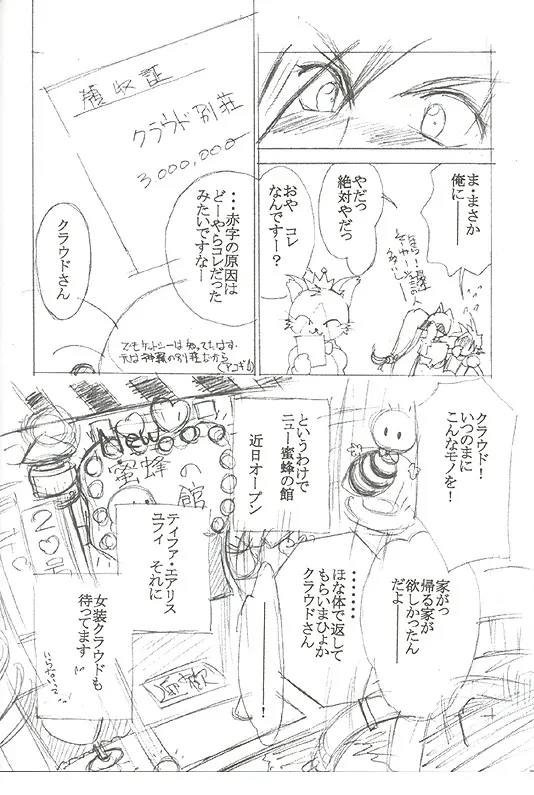 ま・まさか
俺に――
やだっ
絶対やだっ
おや　コレ
なんですー？
領収証
クラウド別荘
3,000,000
・・・・赤字の原因は
どーやらコレだった
みたいですなー
クラウドさん
でもケットシーは知ってたはず。
元は神羅の別荘だから
クラウド！
いつのまに
こんなモノを！
家がっ
帰る家が
欲しかったん
だよ――
・・・・・・・
ほな体で返して
もらいまひょか
クラウドさん
・・・・・・！
というわけで
ニュー蜜蜂の館
近日オープン
New
蜜蜂の
館
ティファ・エアリス
ユフィ　それに
女装クラウドも
待ってます